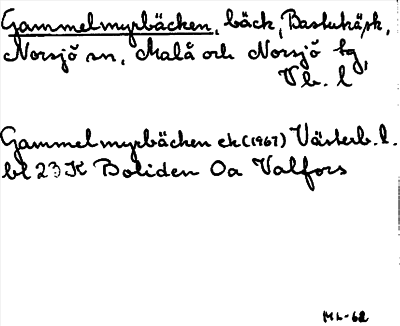 Gammelmyrbäcken, bäck, Bastuträsk,
Norsjö sn, Malå och Norsjö tg,
Vb. l
Gammelmyrbäcken ek (1967) Västerb. l.
bl 23 K Boliden Oa Valfors
ML-62